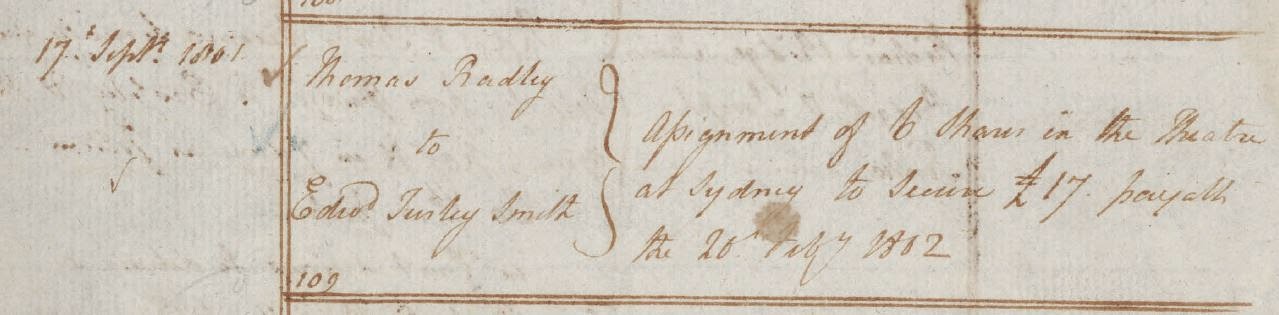 17.t Septr. 1801
Thomas Radley
to
Edwd. Turley Smith
Assignment of 6 Shares in the Theatre
at Sydney to secure £17 payable
the 20t Feby 1802
109